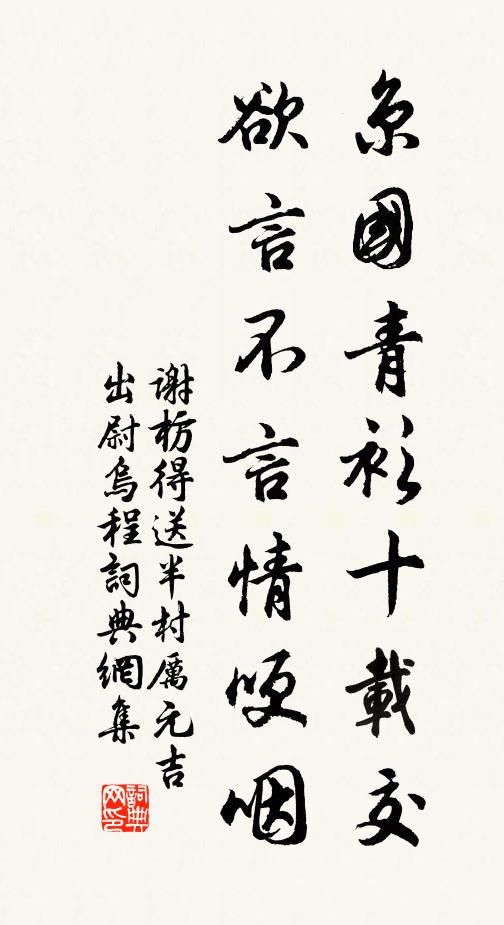 京國青衫十載交
欲言不言情哽咽
謝枋得送半村厲元吉
出尉烏程詞典網集
詞典
网印